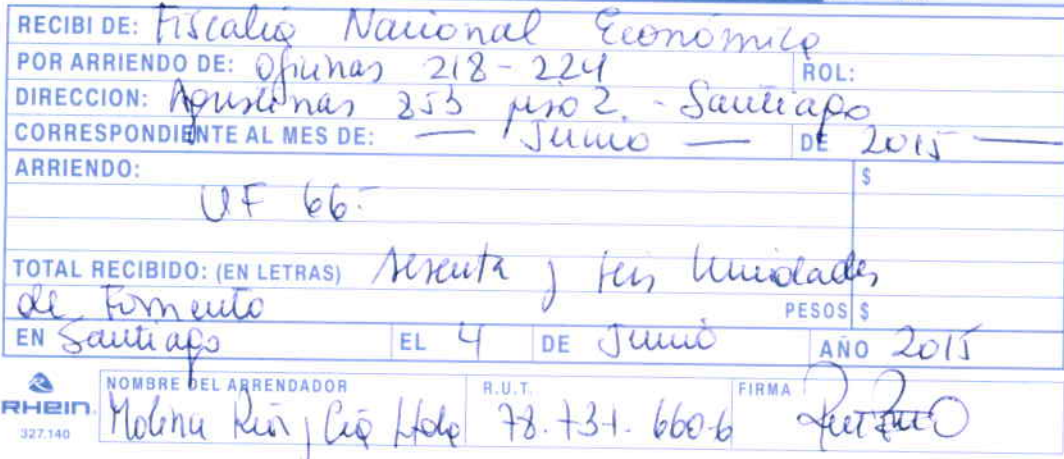 RECIBI DE: Fiscalia Nacional Económica
POR ARRIENDO DE: Oficinas 218-224 ROL:
DIRECCION: Agustinas 853 piso 2. - Santiago
CORRESPONDIENTE AL MES DE: — Junio — DE 2015 —
ARRIENDO: $
UF 66.-
TOTAL RECIBIDO: (EN LETRAS) Sesenta y seis Unidades
de Fomento PESOS $
EN Santiago EL 4 DE Junio AÑO 2015
NOMBRE DEL ARRENDADOR R.U.T. FIRMA
RHEIN. Molina Rios y Cia Ltda 78.731.660-6
327.140